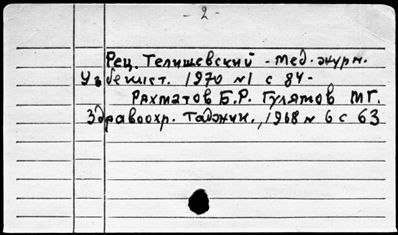 - 2 -
Рец. Телишевский - Мед. журн.
Узбекист. 1970 №1 с 84-
Рахматов Б.Р. Гулямов М.Г.
Здравоохр. Таджик., 1968 № 6 с 63